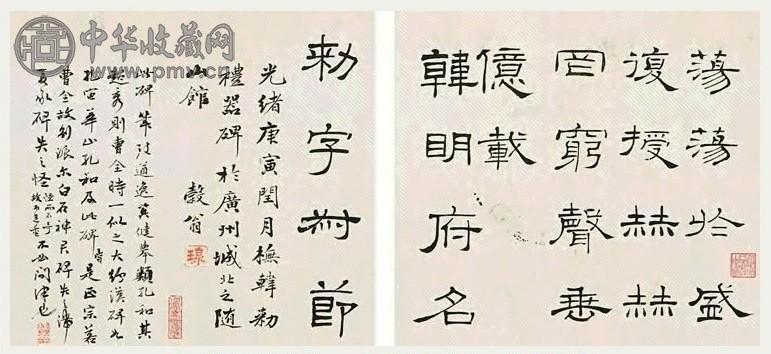 中华收藏网
蕩蕩於盛
復授赫赫
罔窮聲垂
億載
韓明府名
勑字叔節
光緒庚寅閏月橅韓勑
禮器碑於廣州城北之隨
山館 穀翁
此碑筆遒逸健摹類孔和其
秀則曹全時一似之大約漢碑
孔宙華山孔和及此碑皆是正宗若
曹全故別派尔白石神君碑失之滯
夏承碑失之怪怪而不奇故不足書不必問津也